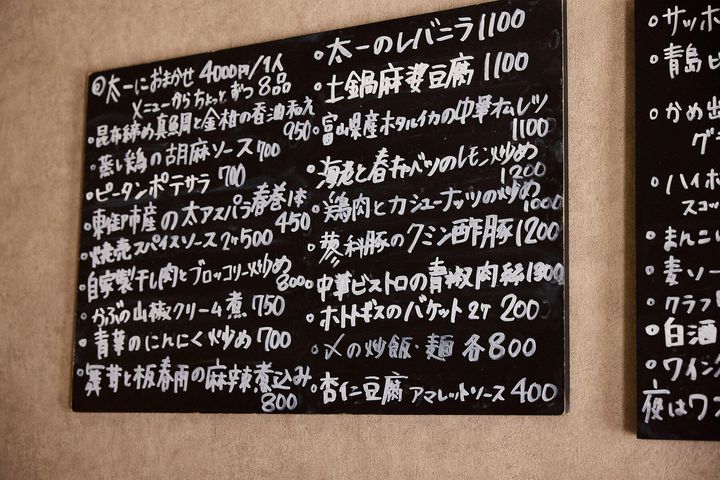 太一におまかせ 4000円/1人
メニューからちょっとずつ 8品
・昆布締め真鯛と金柑の香油和え
950
・蒸し鶏の胡麻ソース 700
・ピータンポテサラ 700
・東御市産の太アスパラ春巻1本
450
・焼売スパイスソース 2ケ 500
・自家製干し肉とブロッコリー炒め
800
・かぶの山椒クリーム煮 750
・青菜のにんにく炒め 700
・舞茸と板春雨の麻辣煮込み
800
・太一のレバニラ 1100
・土鍋麻婆豆腐 1100
・富山県産ホタルイカの中華オムレツ
1100
・海老と春キャベツのレモン炒め
1200
・鶏肉とカシューナッツの炒め
1000
・蓼科豚のクミン酢豚 1200
・中華ビストロの青椒肉絲 1300
・ホトトギスのバケット 2ケ 200
・〆の炒飯・麺 各800
・杏仁豆腐 アマレットソース 400
・サッポ
・青島ビ
・かめ出
グラ
・ハイボ
スコッ
・まんこ
・麦ソー
・クラフ
・白酒
・ワイン
夜はワ